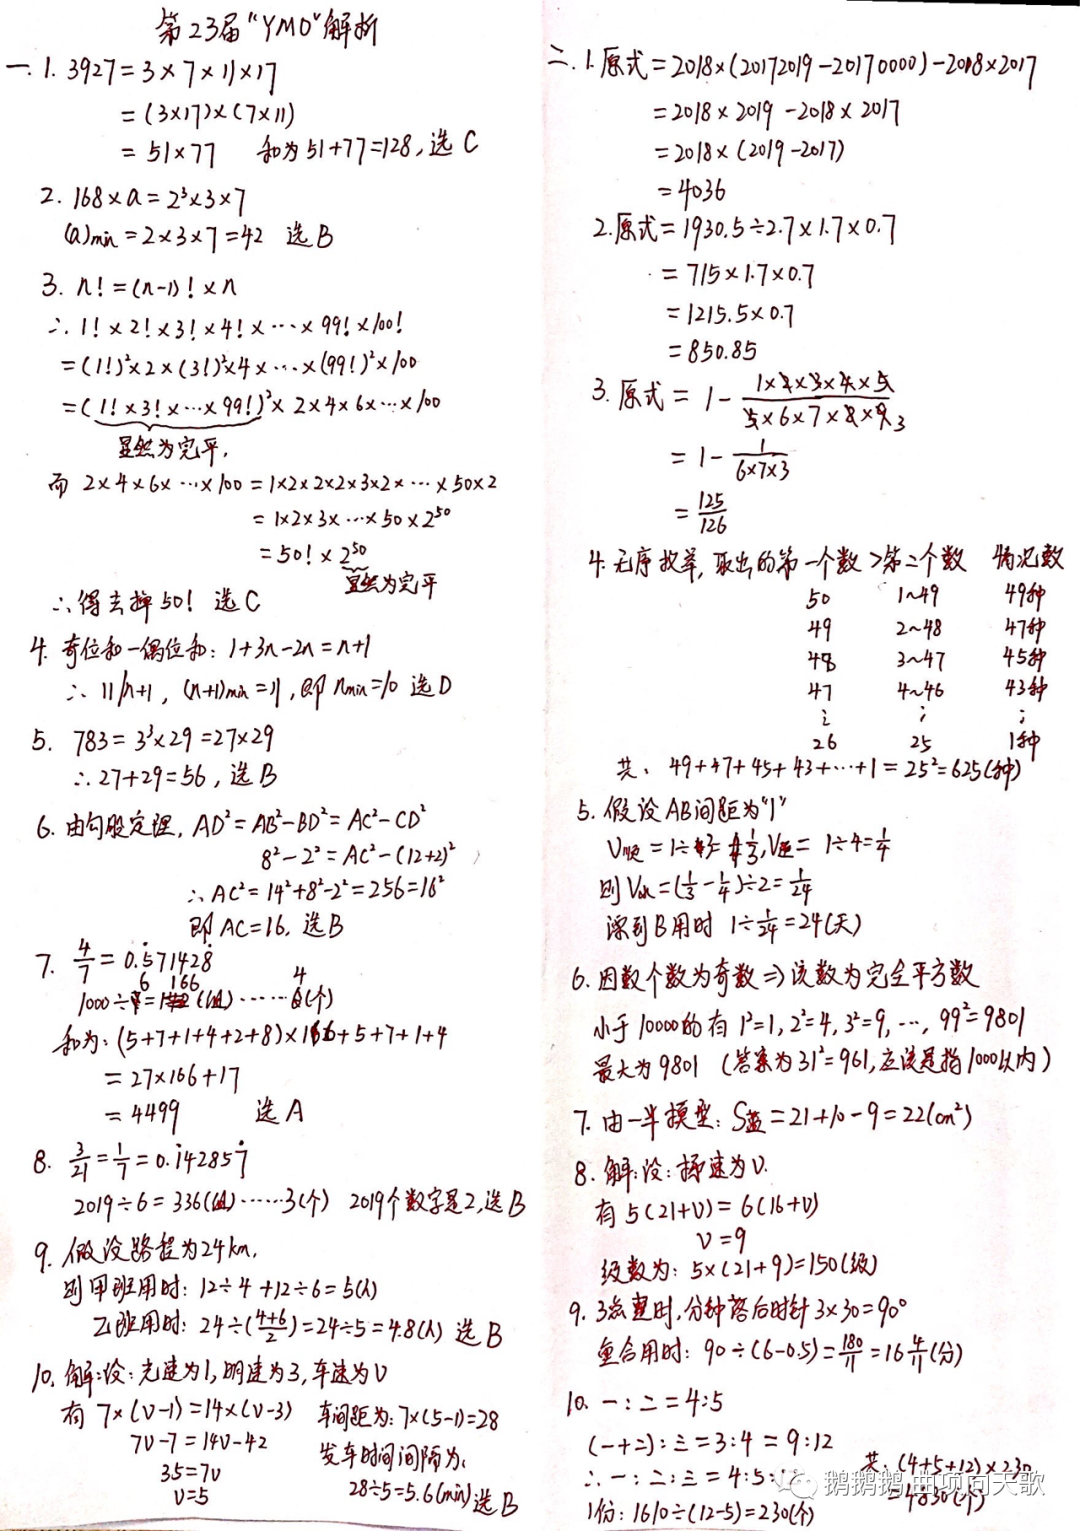 第23届“YMO”解析
一.1. 3927=3×7×11×17
=(3×17)×(7×11)
=51×77 和为51+77=128,选C
2. 168×a=2³×3×7
(a)min=2×3×7=42 选B
3. n!=(n-1)!×n
∴1!×2!×3!×4!×…×99!×100!
=(1!)²×2×(3!)²×4×…×(99!)²×100
=(1!×3!×…×99!)²×2×4×6×…×100
显然为完平,
而 2×4×6×…×100=1×2×2×2×3×2×…×50×2
=1×2×3×…×50×2⁵⁰
=50!×2⁵⁰
显然为完平
∴得去掉50! 选C
4. 奇位和-偶位和: 1+3n-2n=n+1
∴11|n+1, (n+1)min=11,即 nmin=10 选D
5. 783=3³×29=27×29
∴27+29=56, 选B
6. 由勾股定理, AD²=AB²-BD²=AC²-CD²
8²-2²=AC²-(12+2)²
∴AC²=14²+8²-2²=256=16²
即AC=16, 选B
7. 4/7=0.5̇71428̇
1000÷6=166(组)……4(个)
和为:(5+7+1+4+2+8)×166+5+7+1+4
=27×166+17
=4499 选A
8. 3/21=1/7=0.1̇42857̇
2019÷6=336(组)……3(个) 2019个数字是2,选B
9. 假设路程为24km,
则甲班用时: 12÷4+12÷6=5(h)
乙班用时: 24÷(4+6/2)=24÷5=4.8(h) 选B
10. 解:设:光速为1,明速为3,车速为v
有 7×(v-1)=14×(v-3) 车间距为:7×(5-1)=28
7v-7=14v-42 发车时间间隔为:
35=7v 28÷5=5.6(min)选B
v=5
二.1.原式=2018×(20172019-20170000)-2018×2017
=2018×2019-2018×2017
=2018×(2019-2017)
=4036
2.原式=1930.5÷2.7×1.7×0.7
=715×1.7×0.7
=1215.5×0.7
=850.85
3.原式=1-1×2×3×4×5/5×6×7×8×9 3
=1-1/6×7×3
=125/126
4.无序枚举,取出的第一个数>第二个数 情况数
50 1~49 49种
49 2~48 47种
48 3~47 45种
47 4~46 43种
⋮ ⋮ ⋮
26 25 1种
共: 49+47+45+43+…+1=25²=625(种)
5.假设AB间距为“1”
V顺=1÷3=1/3,V逆=1÷4=1/4
则V水=(1/3-1/4)÷2=1/24
漂到B用时 1÷1/24=24(天)
6.因数个数为奇数⇒该数为完全平方数
小于10000的有1²=1,2²=4,3²=9,…,99²=9801
最大为9801 (答案为31²=961,应该是指1000以内)
7.由一半模型: S蓝=21+10-9=22(cm²)
8.解:设:梯速为v.
有 5(21+v)=6(16+v)
v=9
级数为: 5×(21+9)=150(级)
9.3点整时,分钟落后时针3×30=90°
重合用时: 90÷(6-0.5)=180/11=16 4/11(分)
10.一:二=4:5
(一+二):三=3:4=9:12
∴一:二:三=4:5:12 共:(4+5+12)×230
1份:1610÷(12-5)=230(个) =4830(个)
鹅鹅鹅,曲项向天歌